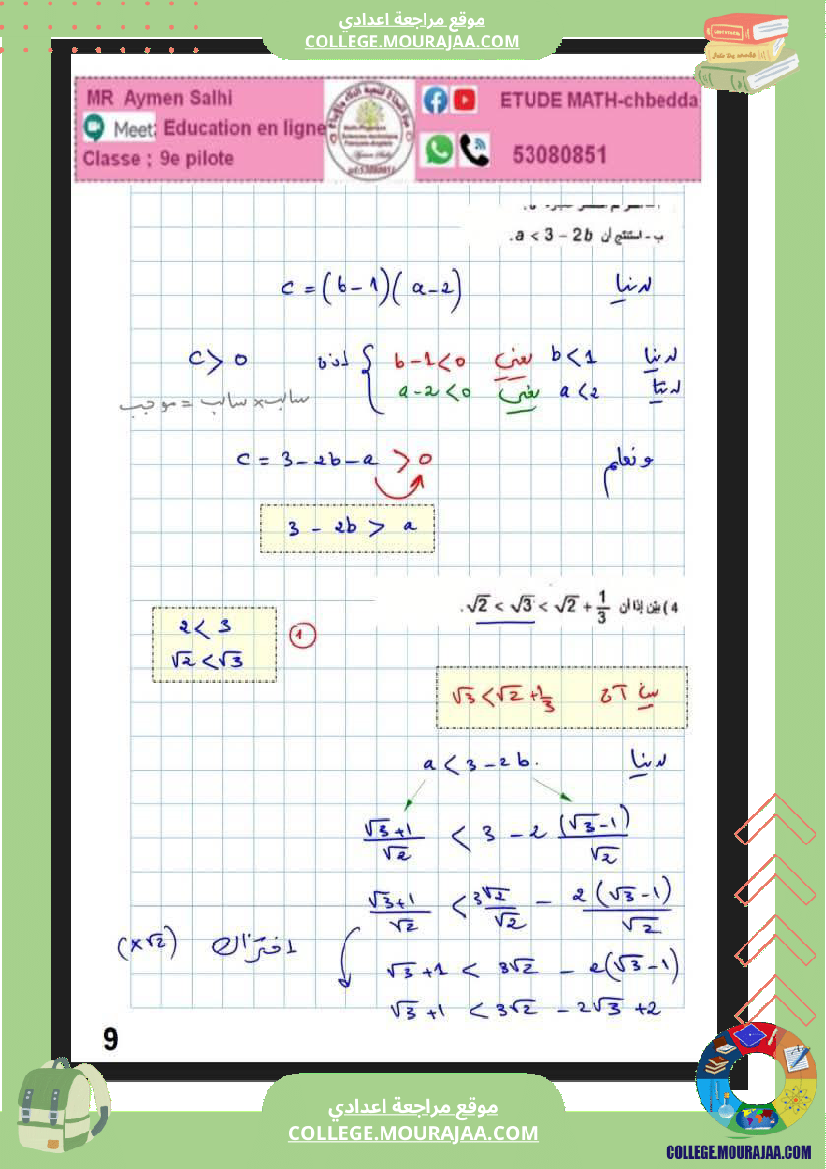 موقع مراجعة اعدادي
COLLEGE.MOURAJAA.COM
MR Aymen Salhi
Meet: Education en ligne
Classe : 9e pilote
ETUDE MATH-chbedda
53080851
ب - استنتج أن a < 3 − 2b.
لدينا c = (b − 1)(a − 2)
لدينا b < 1 يعني b − 1 < 0
لدينا a < 2 يعني a − 2 < 0
إذن c > 0
سالب × سالب = موجب
ونعلم c = 3 − 2b − a > 0
3 − 2b > a
4) بيّن إذا أن √2 < √3 < √2 + 1/3.
1
2 < 3
√2 < √3
√3 < √2 + 1/3
لدينا a < 3 − 2b.
(√3 + 1)/√2 < 3 − 2 (√3 − 1)/√2
(√3 + 1)/√2 < 3√2/√2 − 2(√3 − 1)/√2
اختزال (×√2)
√3 + 1 < 3√2 − 2(√3 − 1)
√3 + 1 < 3√2 − 2√3 + 2
9
موقع مراجعة اعدادي
COLLEGE.MOURAJAA.COM
COLLEGE.MOURAJAA.COM